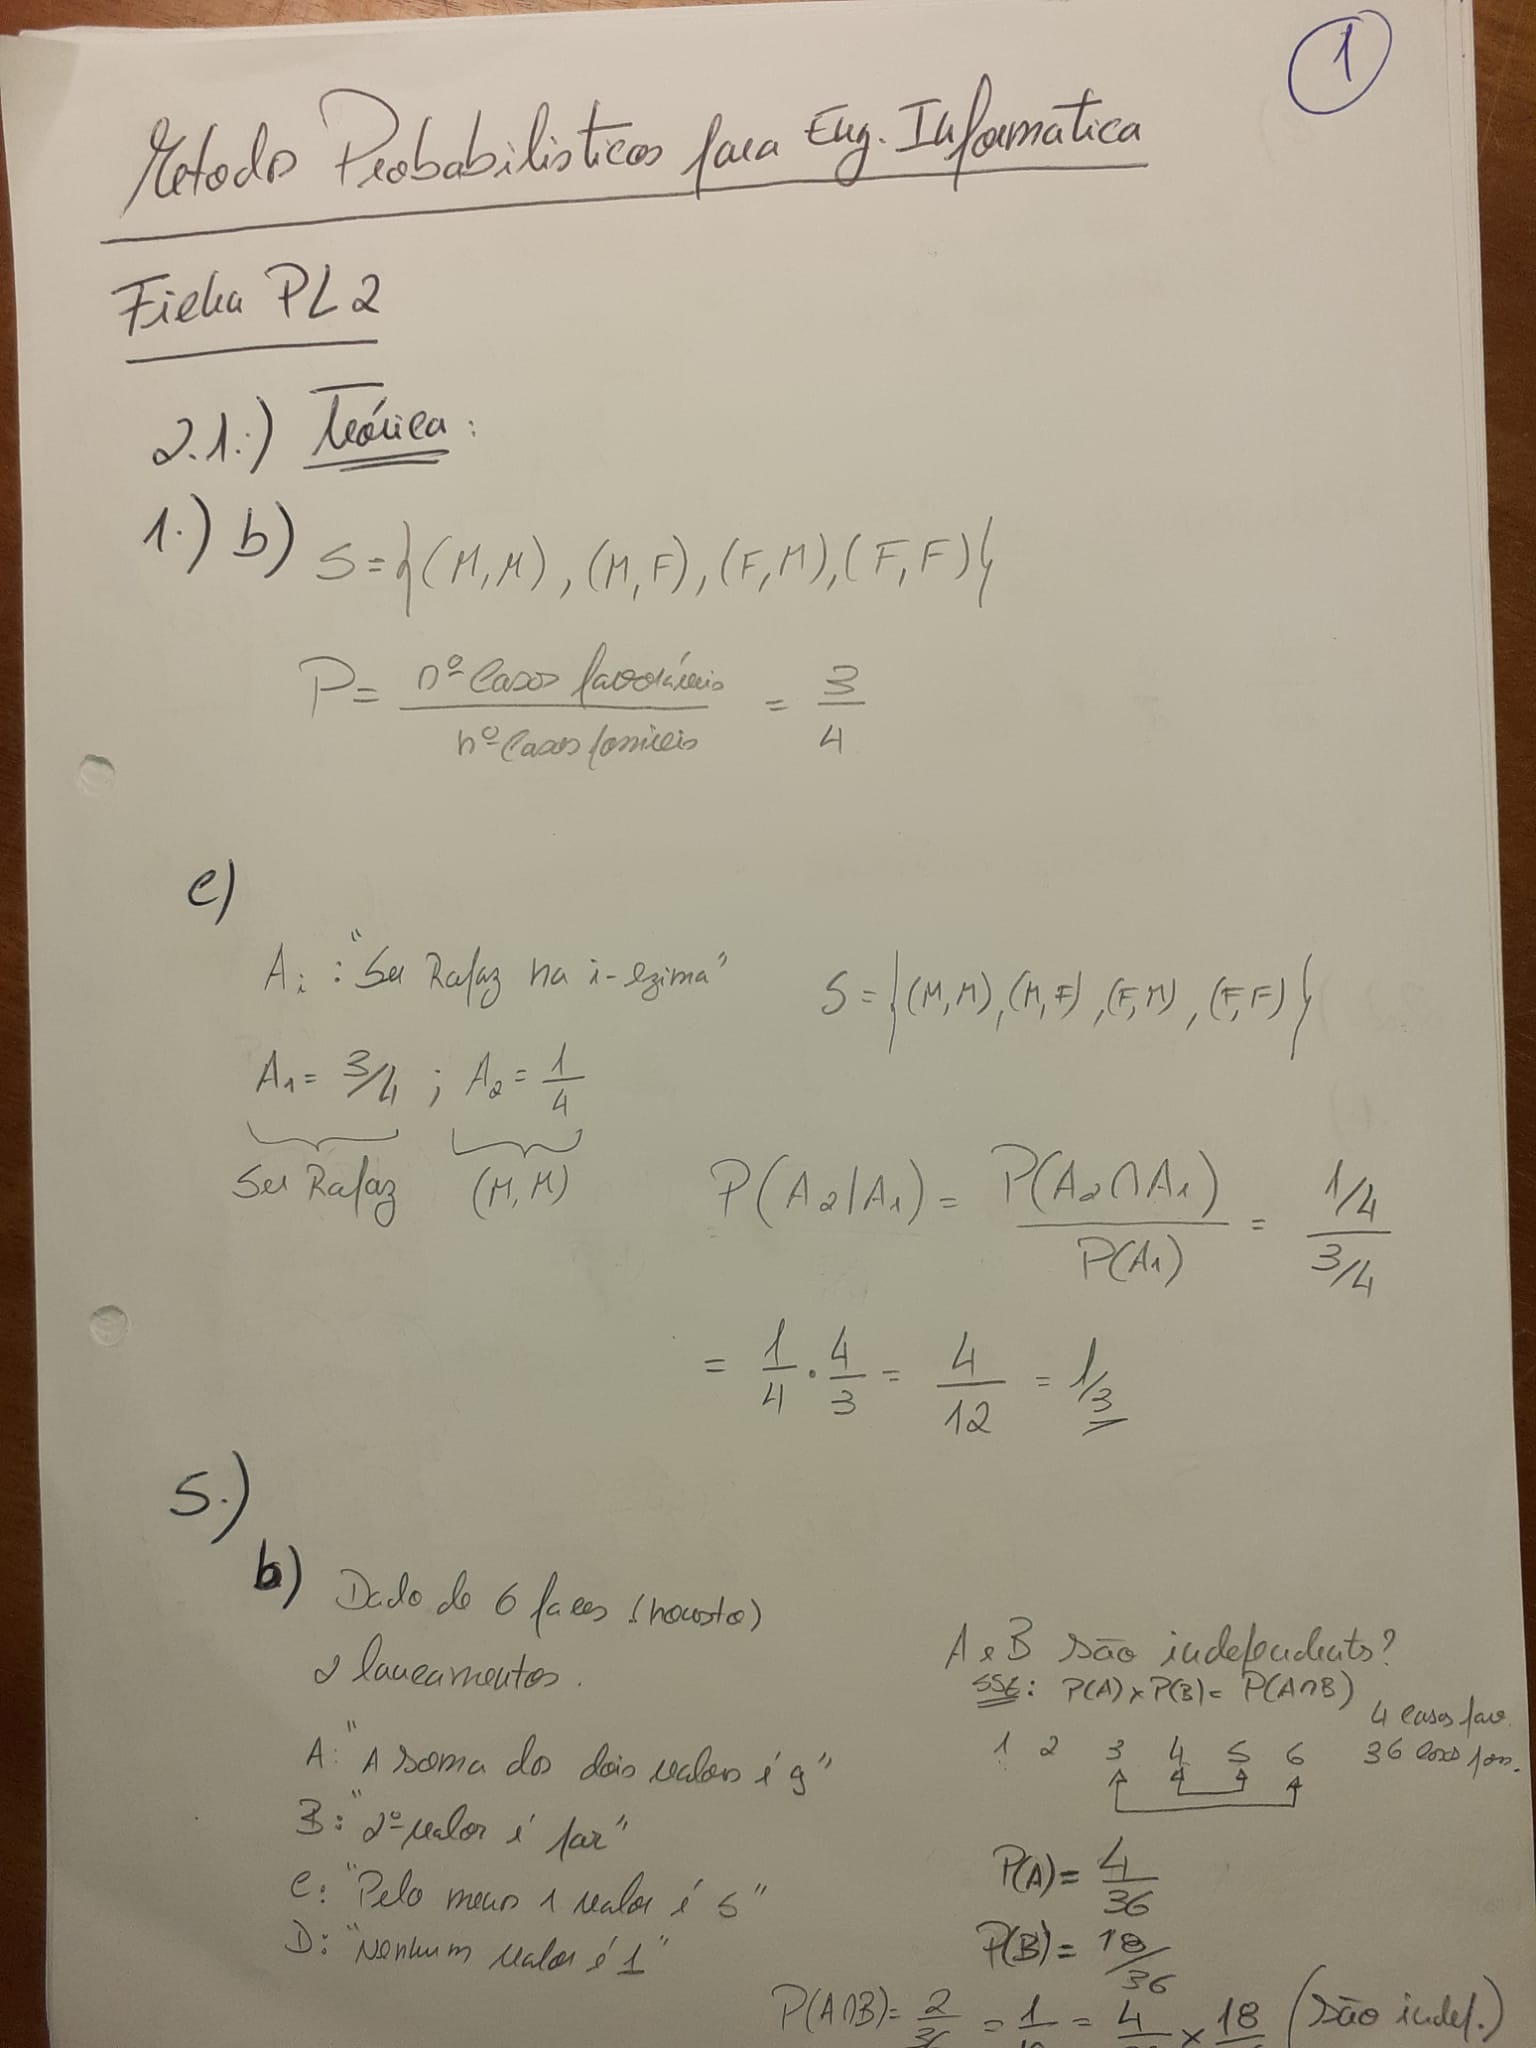 1
Metodos Probabilisticos para Eng. Informatica
Ficha PL2
2.1.) Teórica:
1.) b) S={(M,M), (M,F), (F,M), (F,F)}
P= nº Casos favoráveis / nº Casos possiveis = 3/4
c)
Ai: "Ser Rapaz na i-ezima" S={(M,M), (M,F), (F,M), (F,F)}
A1= 3/4 ; A2= 1/4
Ser Rapaz (M,M)
P(A2|A1) = P(A2∩A1) / P(A1) = 1/4 / 3/4
= 1/4 . 4/3 = 4/12 = 1/3
5.)
b) Dado de 6 faces (honesto)
2 lancamentos.
A: "A soma dos dois valores é 9"
B: "2º valor é par"
C: "Pelo menos 1 valor é 5"
D: "Nenhum valor é 1"
A e B são independents?
SSE: P(A) x P(B) = P(A∩B)
4 casos fav.
1 2 3 4 5 6 36 casos pos.
P(A)= 4/36
P(B)= 18/36
P(A∩B)= 2/36 = 1/ = 4/ x 18/ (são indep.)